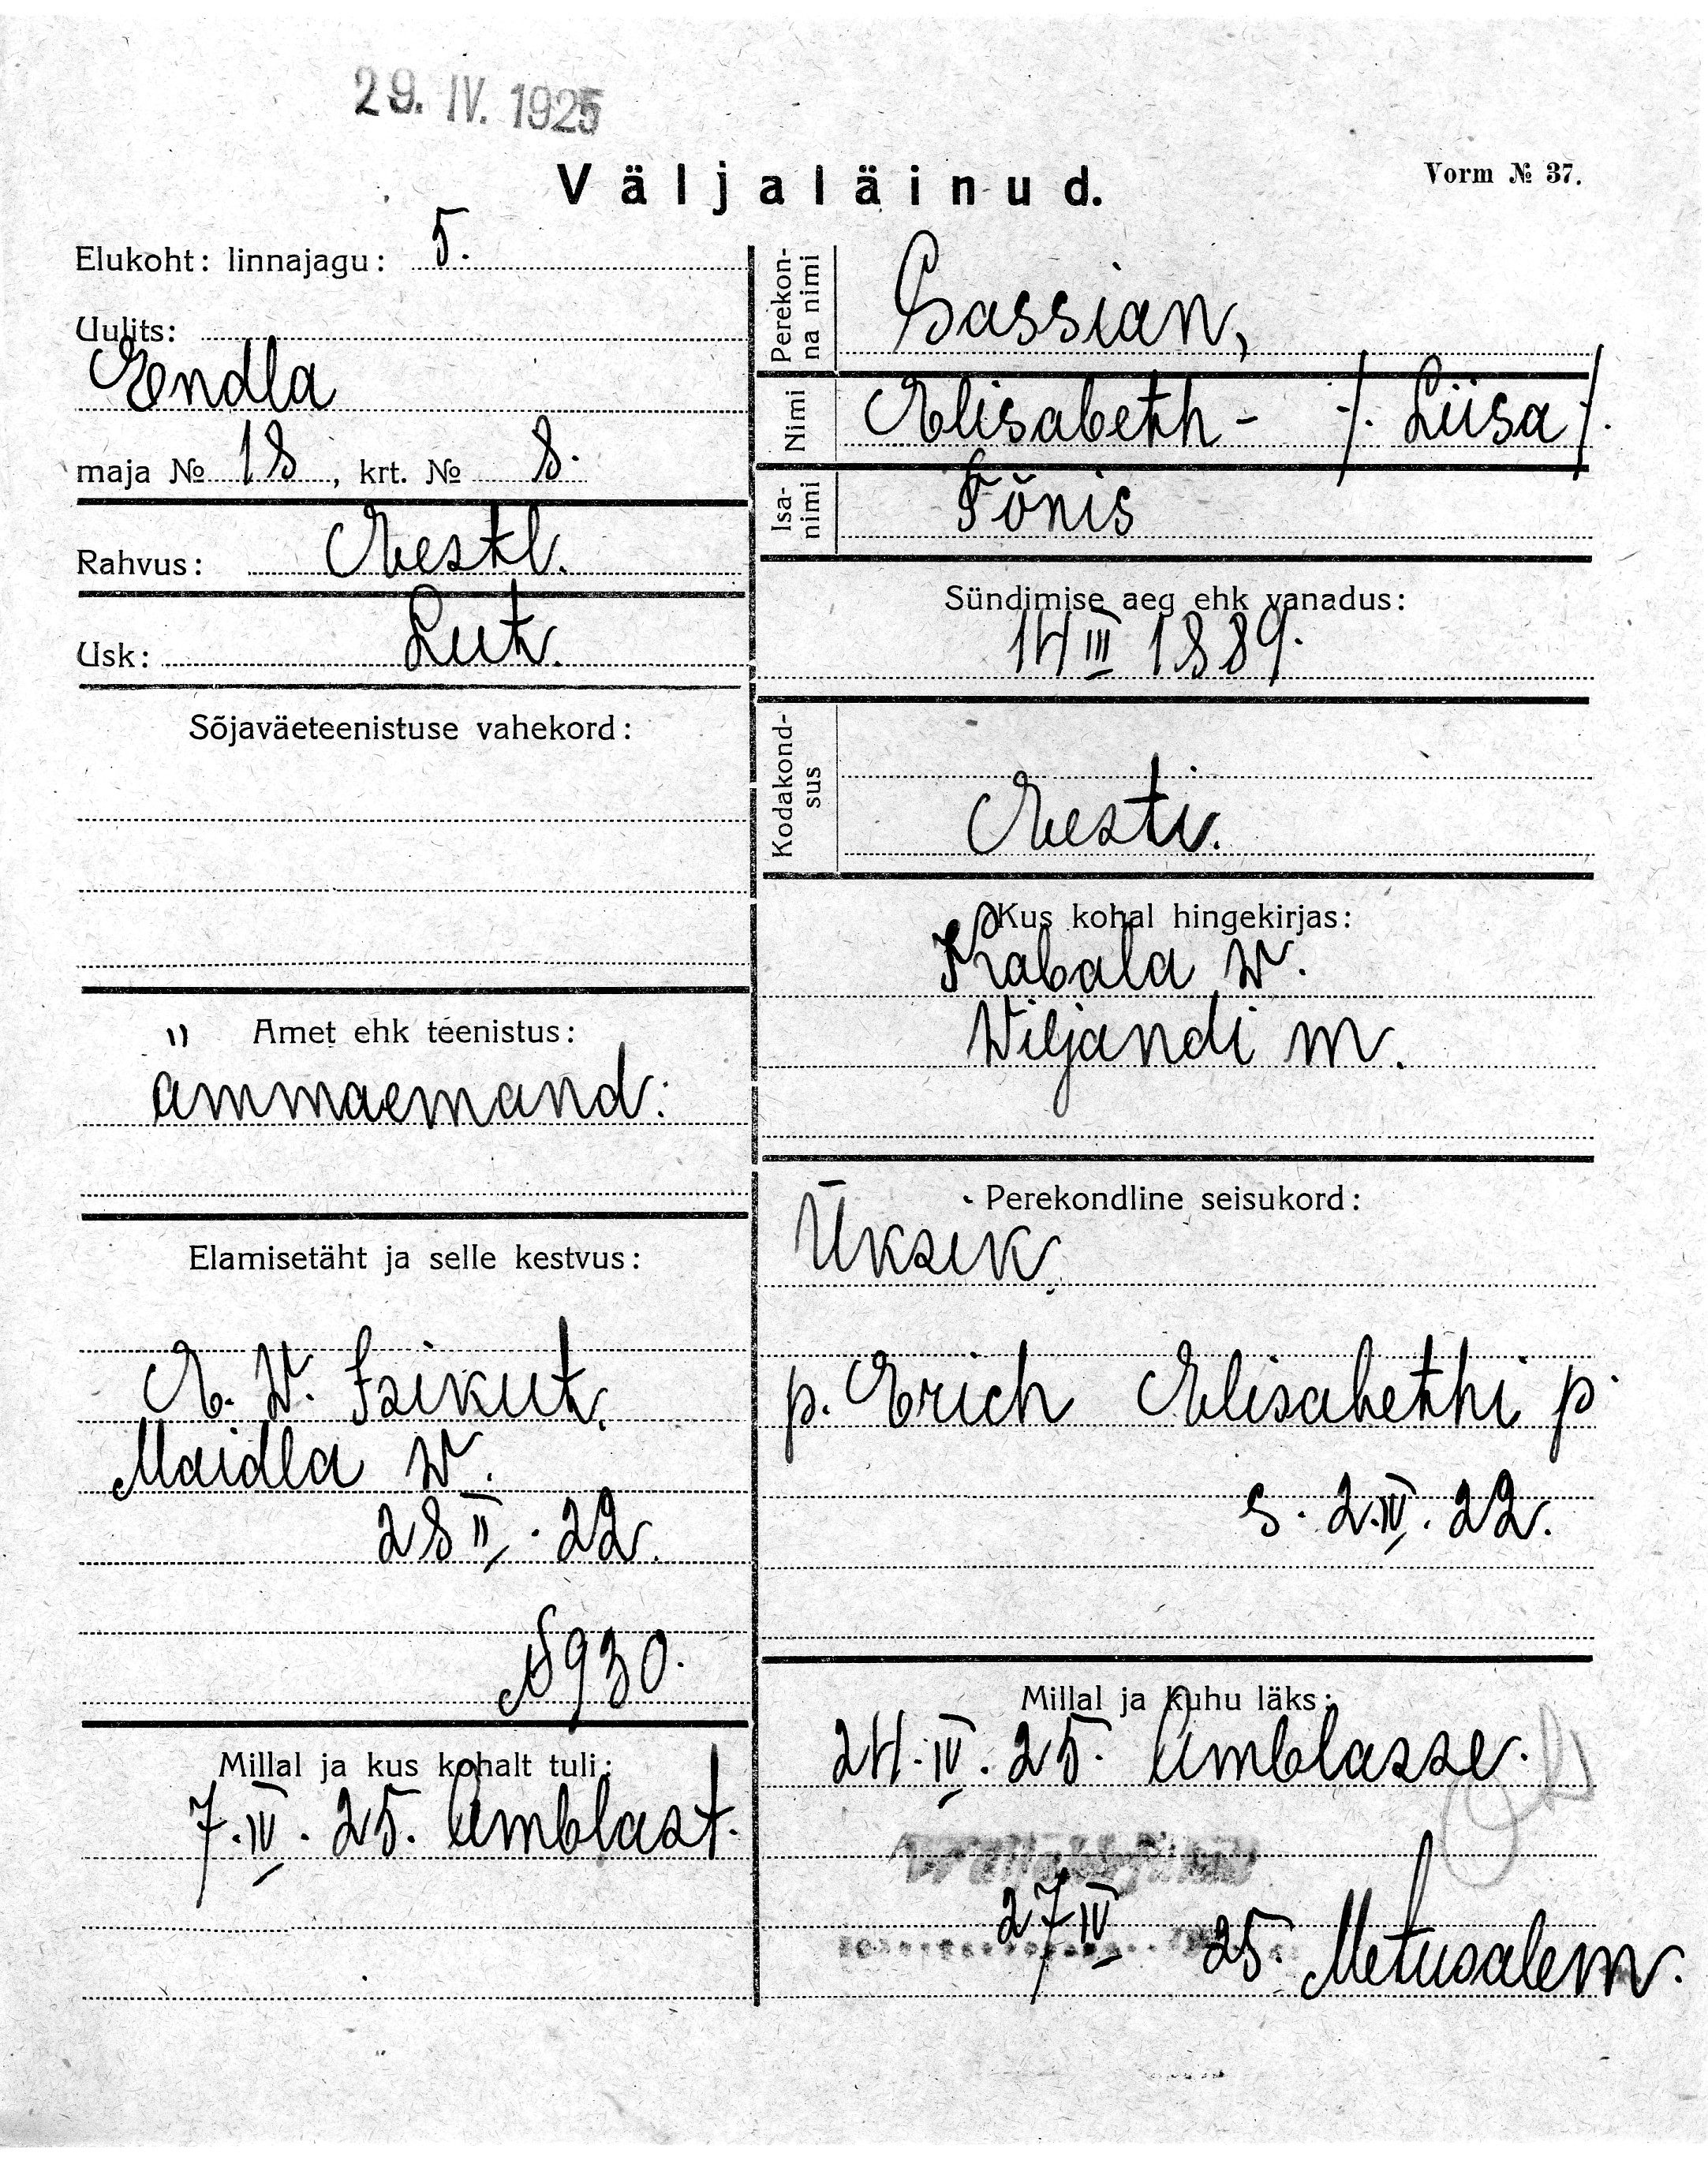 29. IV. 1925
Väljaläinud.
Vorm № 37.
Elukoht: linnajagu: 5.
Uulits:
Endla
maja № 18, krt. № 8.
Rahvus: Eestl.
Usk: Lut.
Sõjaväeteenistuse vahekord:
Amet ehk teenistus:
Ämmaemand.
Elamisetäht ja selle kestvus:
E. W. Isikut.
Maidla w.
28 II. 22.
№ 930.
Millal ja kus kohalt tuli:
7. IV. 25. Amblast.
Perekon-
na nimi
Sassian,
Nimi
Elisabeth - /. Liisa /.
Isa-
nimi
Tõnis
Sündimise aeg ehk vanadus:
14 III 1889.
Kodakond-
sus
Eesti.
Kus kohal hingekirjas:
Kabala w.
Wiljandi m.
Perekondline seisukord:
Üksik.
p. Erich Elisabethi p.
s. 2. IV. 22.
Millal ja kuhu läks:
24. IV. 25. Amblasse.
27 IV 25. Metusalem.